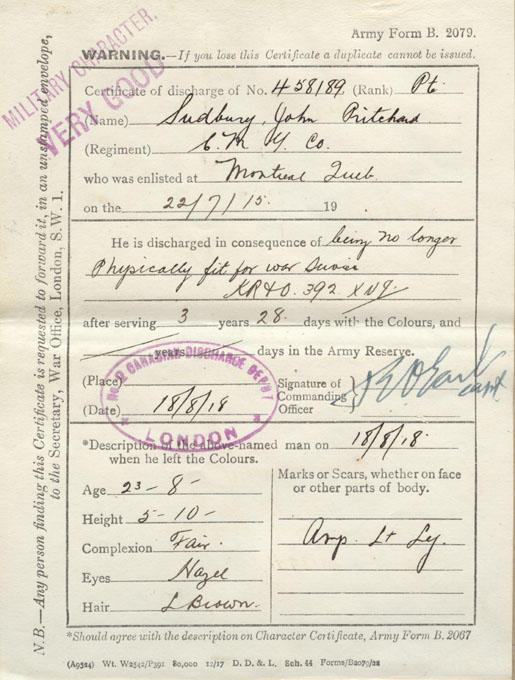 Army Form B. 2079.
WARNING.—If you lose this Certificate a duplicate cannot be issued.
MILITARY CHARACTER.
VERY GOOD
Certificate of discharge of No. 458189 (Rank) Pt.
(Name) Sudbury, John Pritchard
(Regiment) C. M. G. Co.
who was enlisted at Montreal Queb
on the 22/7/15. 19
He is discharged in consequence of being no longer
Physically fit for war Service
KR&O. 392 XVI
after serving 3 years 28 days with the Colours, and
years days in the Army Reserve.
(Place)
CANADIAN DISCHARGE DEPOT
LONDON
(Date) 18/8/18
Signature of
Commanding
Officer
Capt
*Description of the above-named man on 18/8/18.
when he left the Colours.
Age 23 - 8 -
Height 5 - 10 -
Complexion Fair.
Eyes Hazel
Hair L Brown.
Marks or Scars, whether on face
or other parts of body.
Amp. Lt Leg.
*Should agree with the description on Character Certificate, Army Form B. 2067
(A9524) Wt. W2542/P391 80,000 12/17 D. D. & L. Sch. 44 Forms/B2079/22
N.B.—Any person finding this Certificate is requested to forward it, in an unstamped envelope,
to the Secretary, War Office, London, S.W. 1.